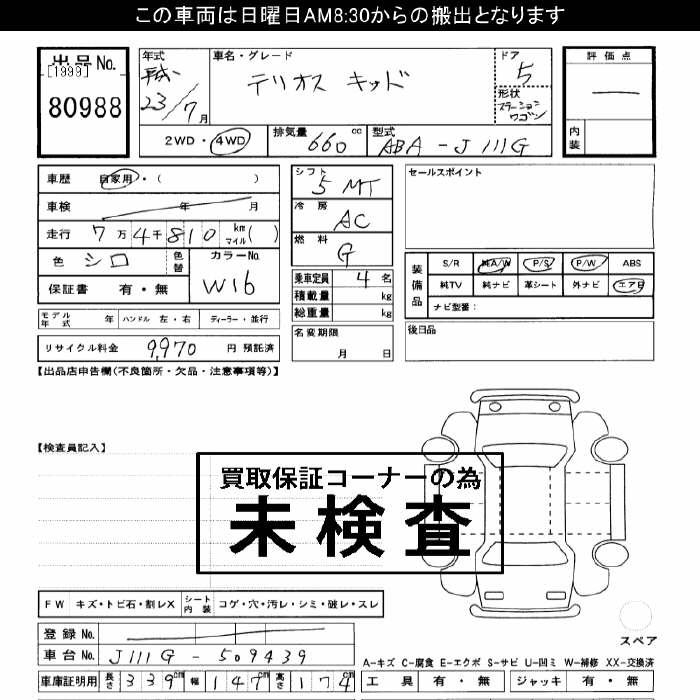 この車両は日曜日AM8:30からの搬出となります
出品No.
[1999]
80988
年式
平成
23/7月
車名・グレード
テリオス キッド
ドア
5
形状
ステーション
ワゴン
評価点
内装
2WD・4WD
排気量 660 cc
型式 ABA-J111G
車歴 自家用・( )
車検 年 月
走行 7万4千810 km マイル( )
色 シロ 色替
カラーNo. W16
保証書 有・無
シフト 5MT
冷房 AC
燃料 G
乗車定員 4名
積載量 kg
総重量 kg
名変期限
月 日
セールスポイント
装備品
S/R 純A/W P/S P/W ABS
純TV 純ナビ 革シート 外ナビ エアB
ナビ型番:
後日品
モデル年式 年 ハンドル 左・右 ディーラー・並行
リサイクル料金 9,970 円 預託済
【出品店申告欄(不良箇所・欠品・注意事項等)】
【検査員記入】
買取保証コーナーの為
未検査
FW キズ・トビ石・割レX シート内装 コゲ・穴・汚レ・シミ・破レ・スレ
登録No.
車台No. J111G-509439
車庫証明用 長さ 339cm 幅 147cm 高さ 174
スペア
A-キズ C-腐食 E-エクボ S-サビ U-凹ミ W-補修 XX-交換済
工具 有・無 ジャッキ 有・無